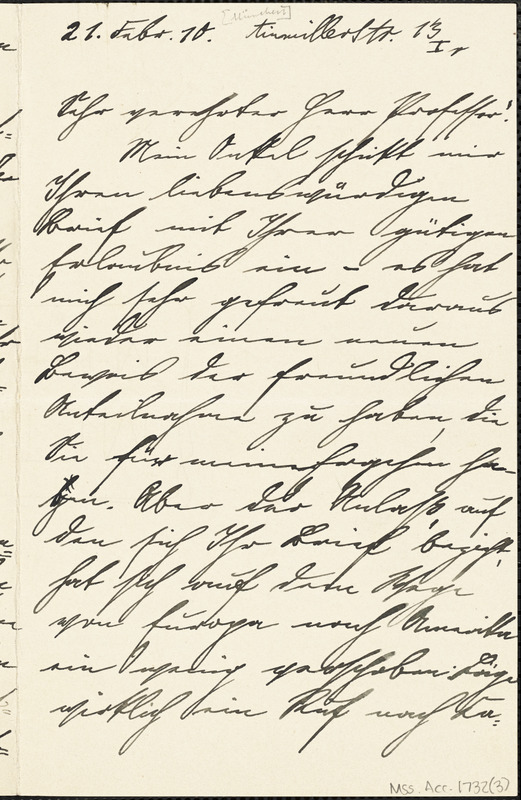 [München]
21. Febr. 10. Ainmillerstr. 13
I r
Sehr verehrter Herr Professor!
Mein Onkel schickt mir
Ihren liebenswürdigen
Brief mit Ihrer gütigen
Erlaubnis ein – es hat
mich sehr gefreut daraus
wieder einen neuen
Beweis der freundlichen
Anteilnahme zu haben, die
Sie für meine Sachen ha-
ben. Aber der Anlass, auf
den sich Ihr Brief bezieht,
hat sich auf dem Wege
von Europa nach Amerika
ein wenig verschoben: Läge
wirklich ein Ruf nach La-
Mss. Acc. 1732(3)